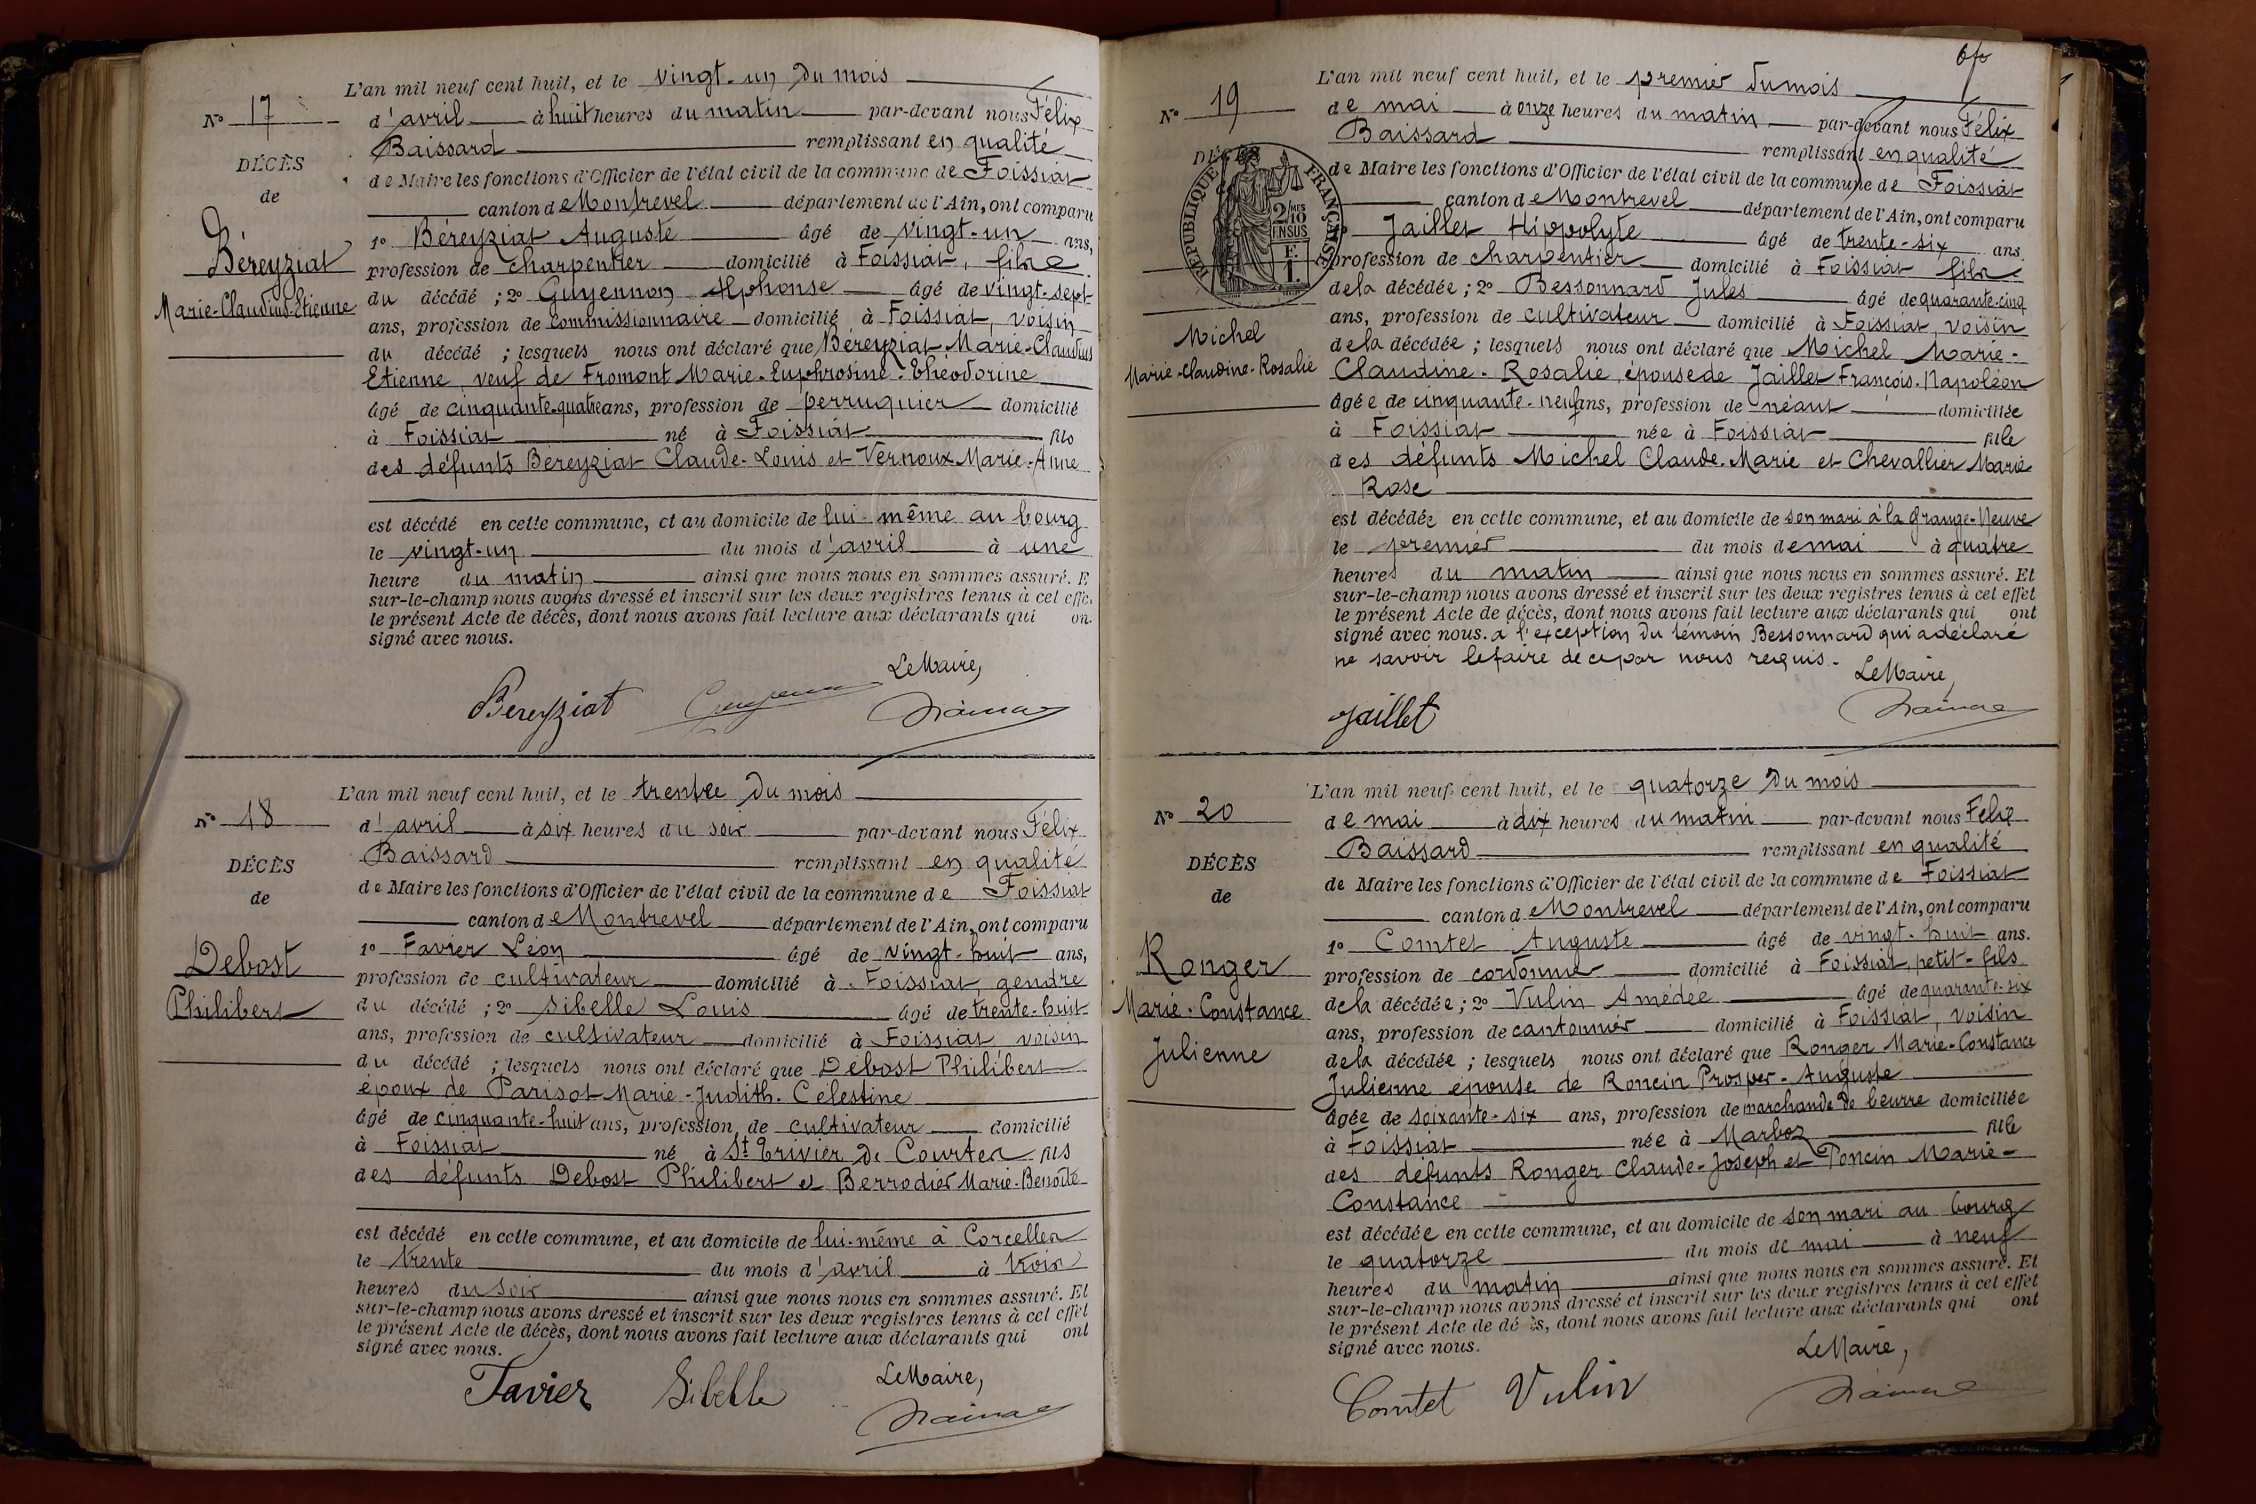 L'an mil neuf cent huit, et le vingt-un du mois
No 17
d'avril à huit heures du matin par-devant nous Félix
Baissard remplissant en qualité
DÉCÈS
de Maire les fonctions d'Officier de l'état civil de la commune de Foissiat
de
canton de Montrevel département de l'Ain, ont comparu
1o Béreyziat Auguste âgé de vingt-un ans,
Béreyziat
profession de charpentier domicilié à Foissiat, fils
Marie-Claudius-Etienne
du décédé ; 2o Guyennon Alphonse âgé de vingt-sept
ans, profession de commissionnaire domicilié à Foissiat, voisin
du décédé ; lesquels nous ont déclaré que Béreyziat Marie-Claudius
Etienne veuf de Fromont Marie-Euphrosine-Théodorine
âgé de cinquante-quatre ans, profession de perruquier domicilié
à Foissiat né à Foissiat fils
des défunts Béreyziat Claude-Louis et Vernoux Marie-Anne
est décédé en cette commune, et au domicile de lui-même au bourg
le vingt-un du mois d'avril à une
heure du matin ainsi que nous nous en sommes assuré. E
sur-le-champ nous avons dressé et inscrit sur les deux registres tenus à cet effe
le présent Acte de décès, dont nous avons fait lecture aux déclarants qui on
signé avec nous.
Le Maire,
Béreyziat
L'an mil neuf cent huit, et le trente du mois
No 18
d'avril à six heures du soir par-devant nous Félix
Baissard remplissant en qualité
DÉCÈS
de Maire les fonctions d'Officier de l'état civil de la commune de Foissiat
de
canton de Montrevel département de l'Ain, ont comparu
1o Favier Léon âgé de vingt-huit ans,
Debost
profession de cultivateur domicilié à Foissiat, gendre
Philibert
du décédé ; 2o Sibelle Louis âgé de trente-huit
ans, profession de cultivateur domicilié à Foissiat voisin
du décédé ; lesquels nous ont déclaré que Debost Philibert
époux de Parisot Marie-Judith-Célestine
âgé de cinquante-huit ans, profession de cultivateur domicilié
à Foissiat né à St Trivier de Courtes fils
des défunts Debost Philibert et Berrodier Marie-Benoîte
est décédé en cette commune, et au domicile de lui-même à Corcelles
le trente du mois d'avril à trois
heures du soir ainsi que nous nous en sommes assuré. Et
sur-le-champ nous avons dressé et inscrit sur les deux registres tenus à cet effet
le présent Acte de décès, dont nous avons fait lecture aux déclarants qui ont
signé avec nous.
Le Maire,
Favier Sibelle
L'an mil neuf cent huit, et le premier du mois
No 19
de mai à onze heures du matin par-devant nous Félix
Baissard remplissant en qualité
DÉCÈS
de Maire les fonctions d'Officier de l'état civil de la commune de Foissiat
RÉPUBLIQUE FRANÇAISE
2/10 MES
EN SUS
F.
1.
canton de Montrevel département de l'Ain, ont comparu
Jaillet Hippolyte âgé de trente-six ans.
profession de charpentier domicilié à Foissiat fils
de la décédée ; 2o Bessonnard Jules âgé de quarante-cinq
ans, profession de cultivateur domicilié à Foissiat, voisin
Michel
de la décédée ; lesquels nous ont déclaré que Michel Marie-
Marie-Claudine-Rosalie
Claudine-Rosalie, épouse de Jaillet François-Napoléon
âgée de cinquante-neuf ans, profession de néant domiciliée
à Foissiat née à Foissiat fille
des défunts Michel Claude-Marie et Chevallier Marie
Rose
est décédée en cette commune, et au domicile de son mari à la Grange-Neuve
le premier du mois de mai à quatre
heures du matin ainsi que nous nous en sommes assuré. Et
sur-le-champ nous avons dressé et inscrit sur les deux registres tenus à cet effet
le présent Acte de décès, dont nous avons fait lecture aux déclarants qui ont
signé avec nous. à l'exception du témoin Bessonnard qui a déclaré
ne savoir le faire de ce par nous requis.
Le Maire,
Jaillet
L'an mil neuf cent huit, et le quatorze du mois
No 20
de mai à dix heures du matin par-devant nous Félix
Baissard remplissant en qualité
DÉCÈS
de Maire les fonctions d'Officier de l'état civil de la commune de Foissiat
de
canton de Montrevel département de l'Ain, ont comparu
1o Comtet Auguste âgé de vingt-huit ans.
Ronger
profession de cordonnier domicilié à Foissiat, petit-fils
Marie-Constance
de la décédée ; 2o Vulin Amédée âgé de quarante-six
ans, profession de cantonnier domicilié à Foissiat, voisin
Julienne
de la décédée ; lesquels nous ont déclaré que Ronger Marie-Constance
Julienne épouse de Roncin Prosper-Auguste
âgée de soixante-six ans, profession de marchande de beurre domiciliée
à Foissiat née à Marboz fille
des défunts Ronger Claude-Joseph et Poncin Marie-
Constance
est décédée en cette commune, et au domicile de son mari au bourg
le quatorze du mois de mai à neuf
heures du matin ainsi que nous nous en sommes assuré. Et
sur-le-champ nous avons dressé et inscrit sur les deux registres tenus à cet effet
le présent Acte de dé ès, dont nous avons fait lecture aux déclarants qui ont
signé avec nous.
Le Maire,
Comtet Vulin